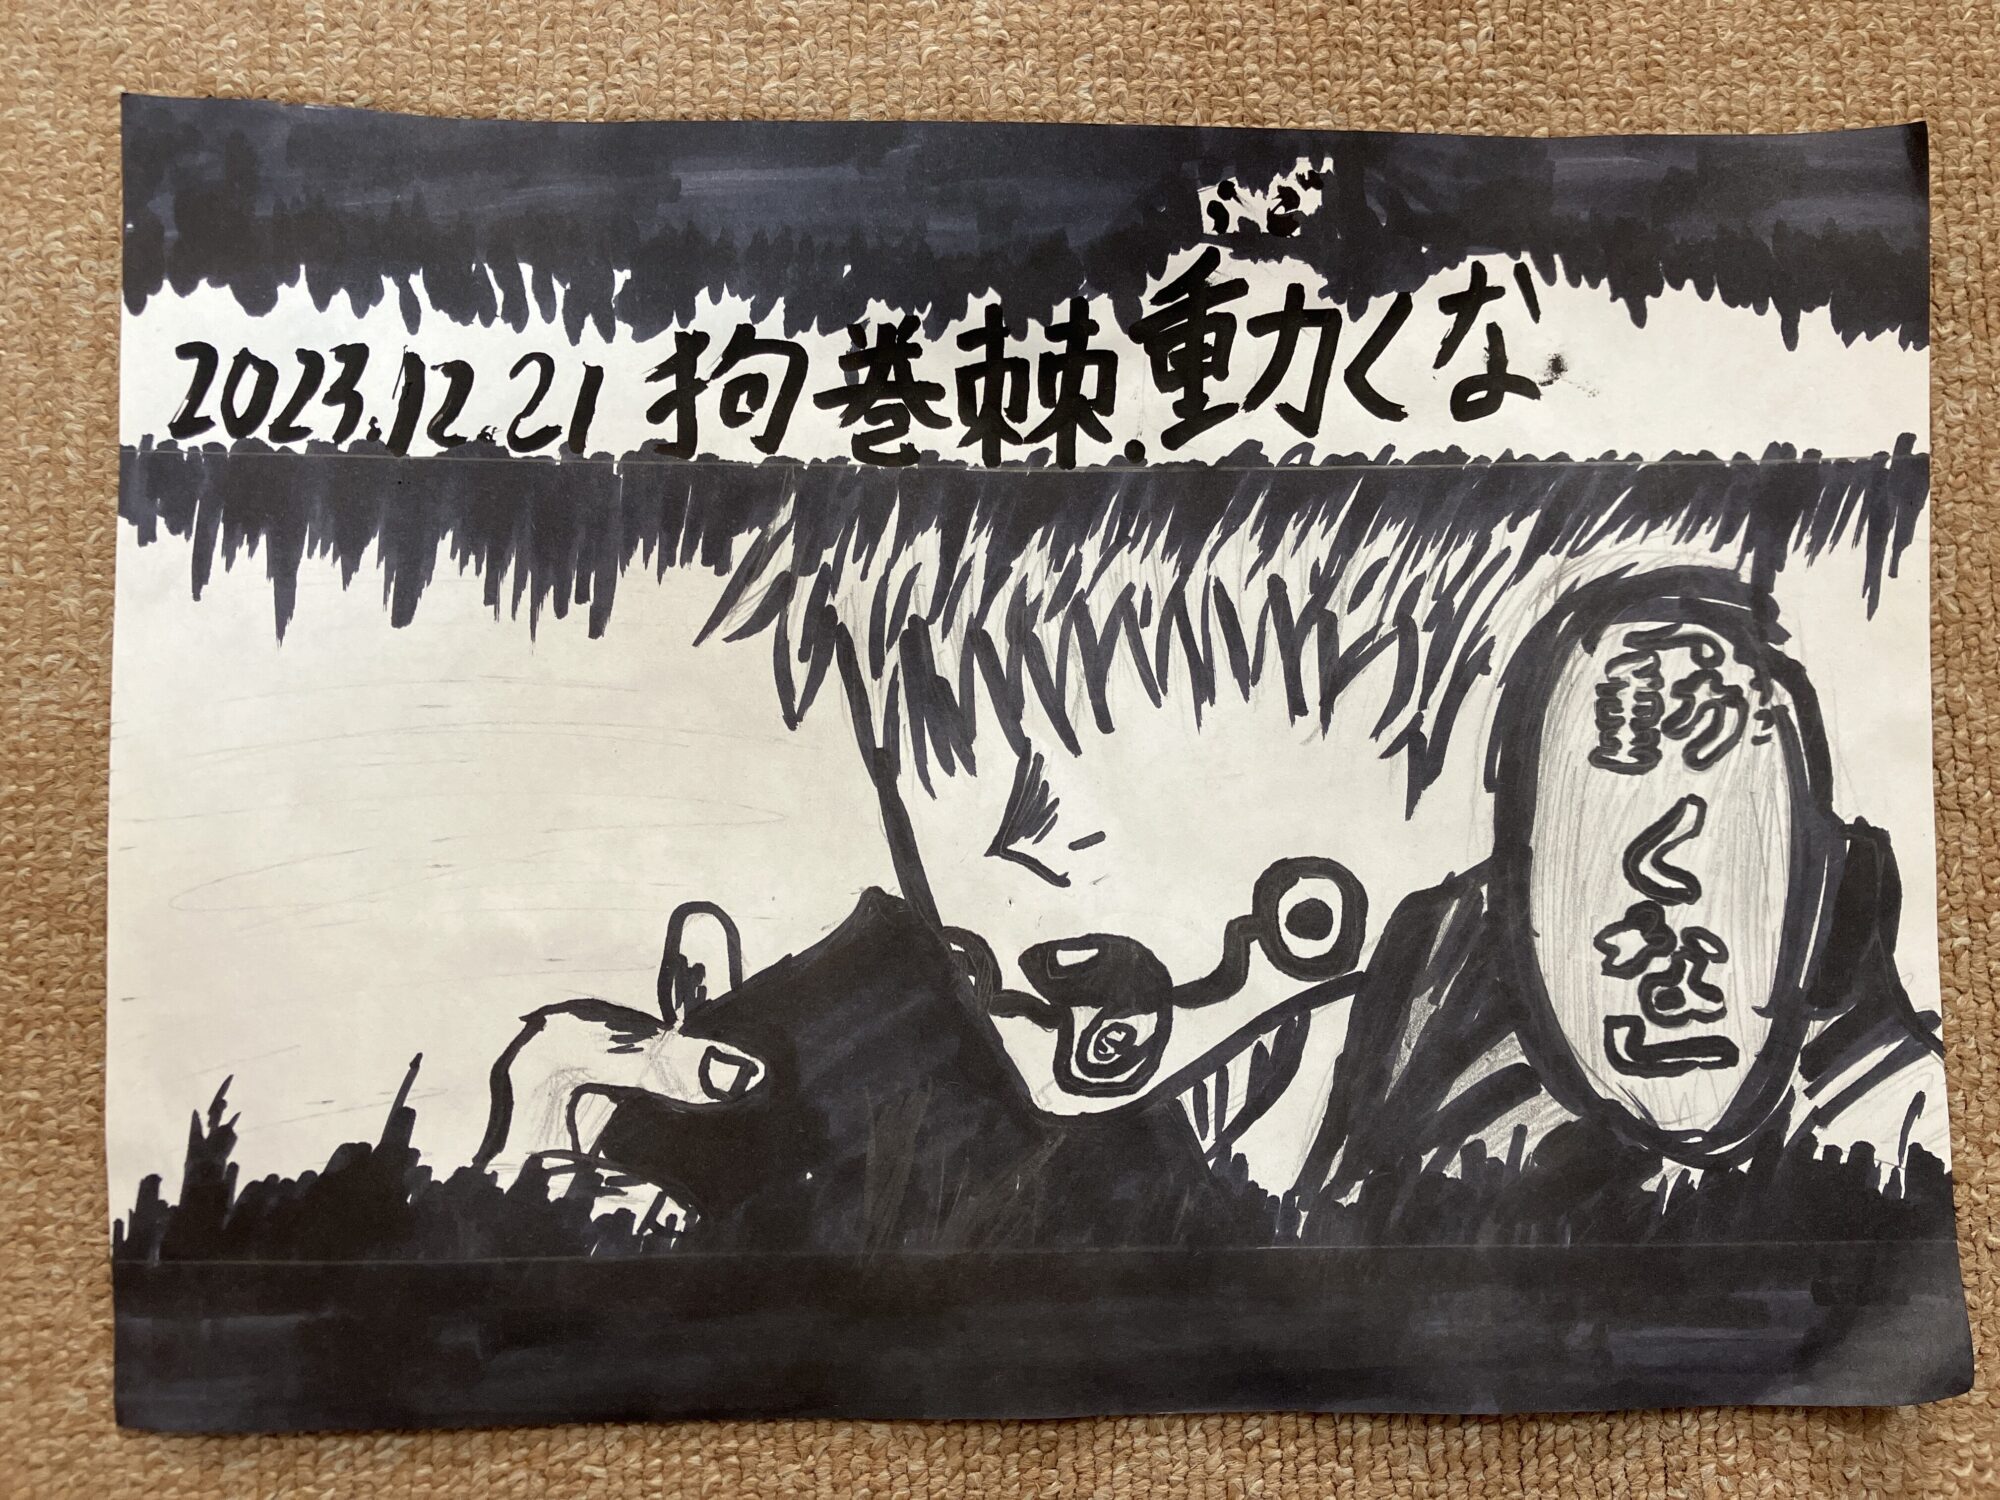 うご
2023.12.21 狗巻棘.動くな
動くな